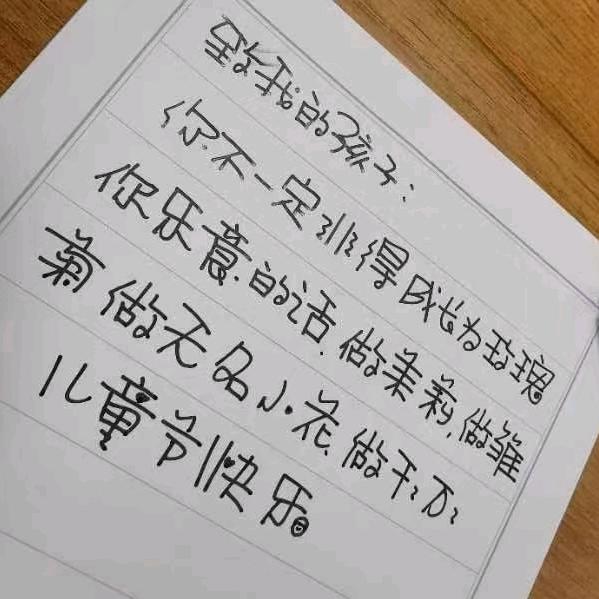 致我的孩子:
你不一定非得成长为玫瑰
你乐意的话,做茉莉,做雏
菊做无名小花,做千千万万
儿童节快乐